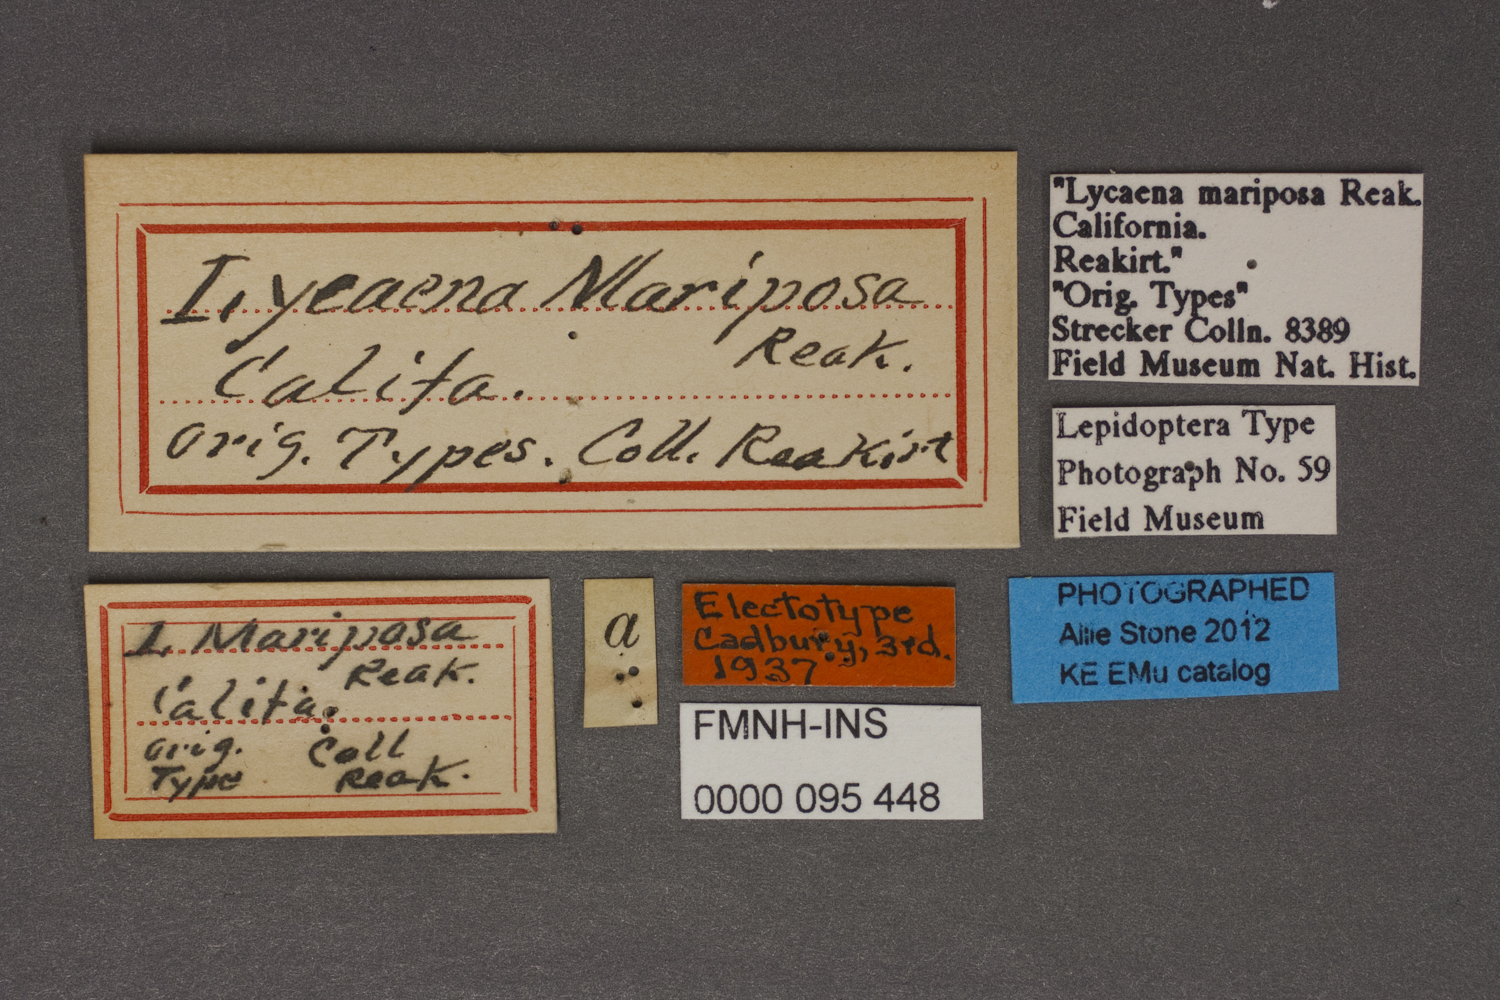 Lycaena Mariposa
Reak.
Califa.
Orig. Types. Coll. Reakirt
"Lycaena mariposa Reak.
California.
Reakirt."
"Orig. Types"
Strecker Colln. 8389
Field Museum Nat. Hist.
Lepidoptera Type
Photograph No. 59
Field Museum
L. Mariposa
Reak.
Califa.
Orig. Coll
Type Reak.
a
Electotype
Cadbury, 3rd.
1937
FMNH-INS
0000 095 448
PHOTOGRAPHED
Allie Stone 2012
KE EMu catalog